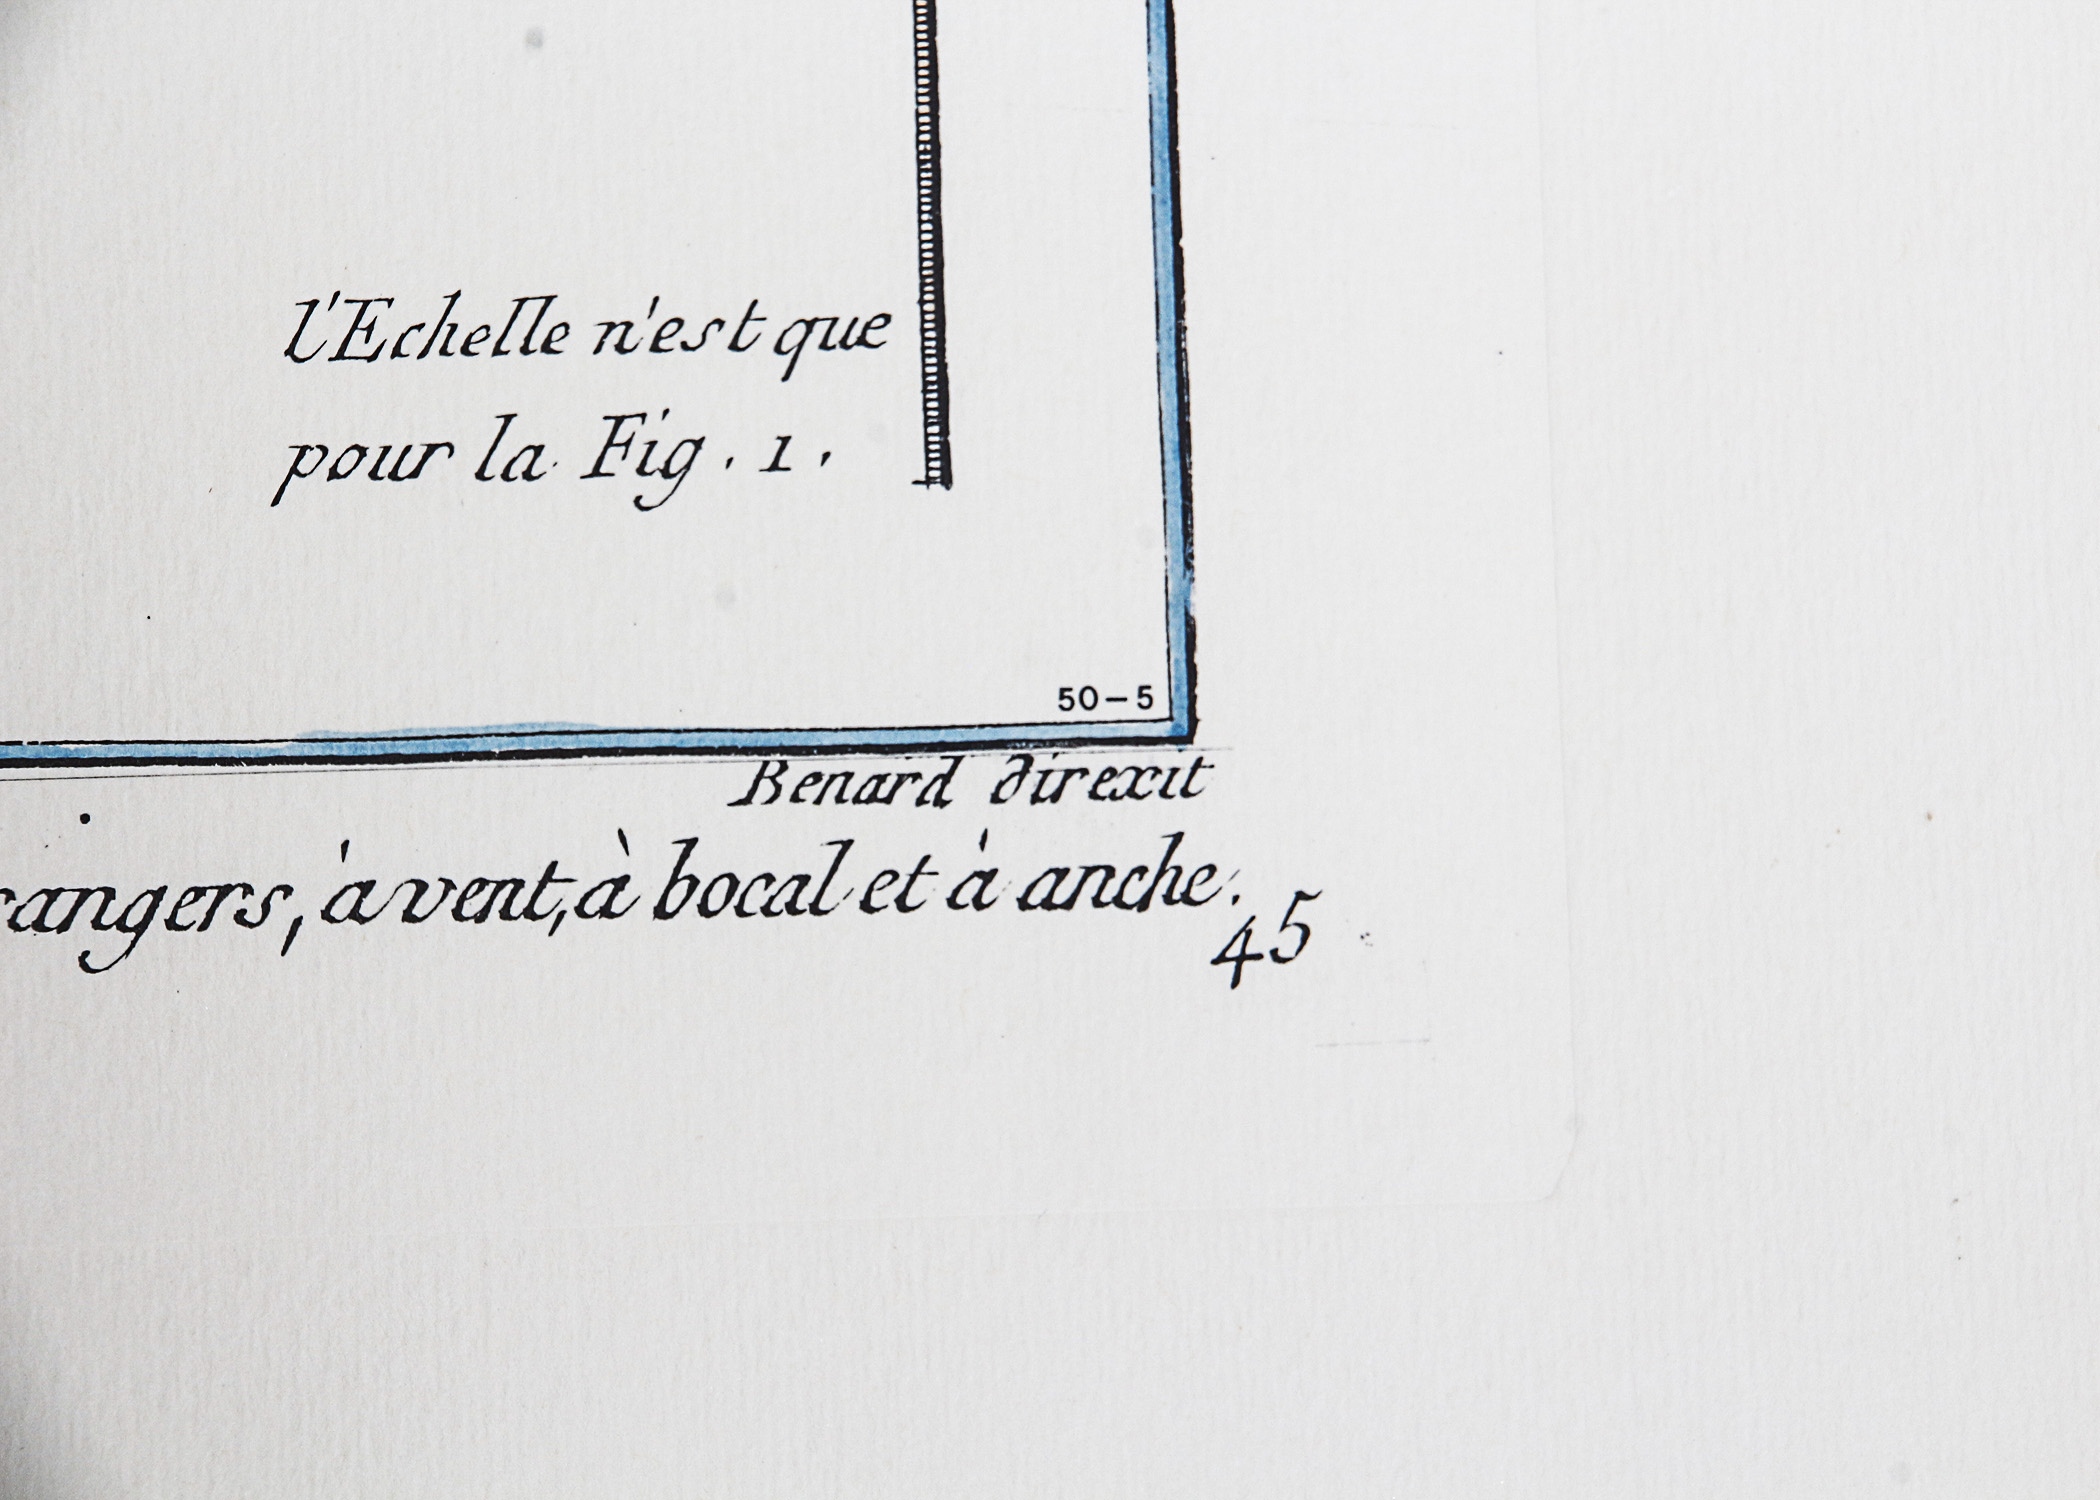 l'Echelle n'est que
pour la Fig. 1.
50-5
Benard direxit
rangers, à vent, à bocal et à anche.
45